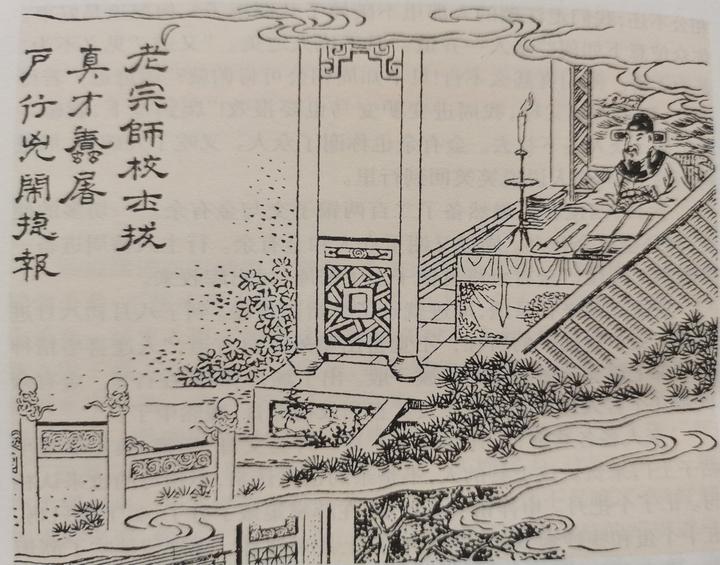 老宗師校士拔
真才蠢屠
戶行兇鬧捷報